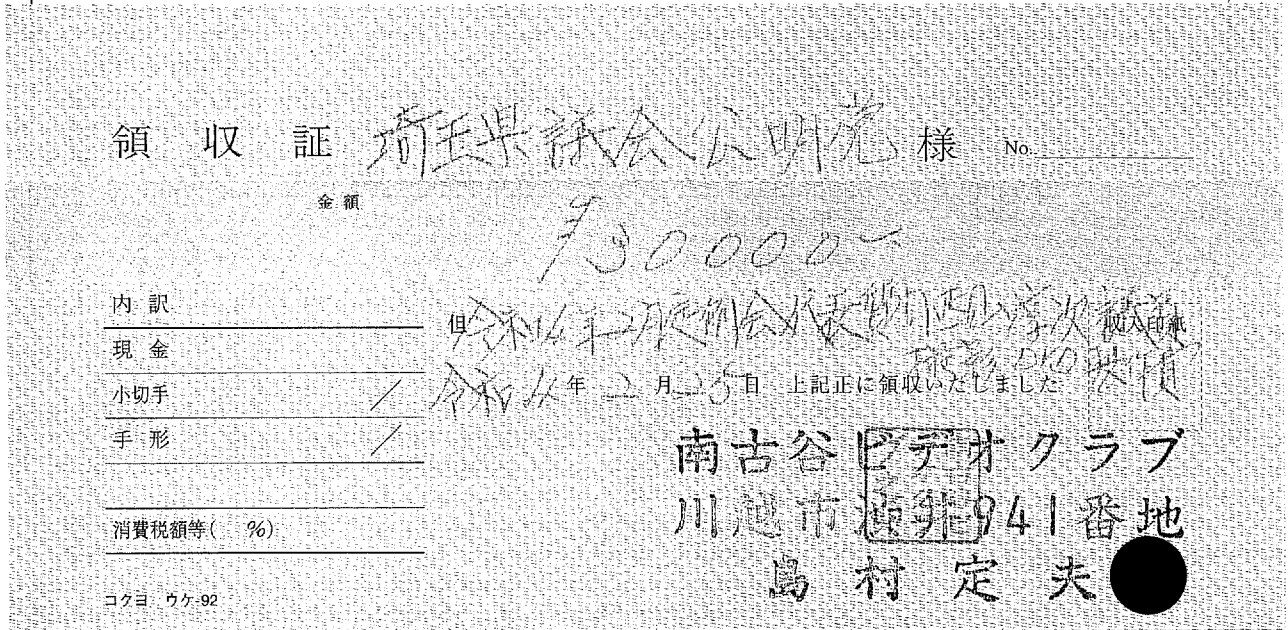 領収証 埼玉県議会公明党 様 No.
金額
¥30000-
内訳
現金
小切手
手形
消費税額等( %)
但 令和4年2月定例会代表質問 次議員
撮影DVD
収入印紙
令和4年2月25日 上記正に領収いたしました
南古谷ビデオクラブ
川越市 941番地
島村定夫
コクヨ ウケ-92